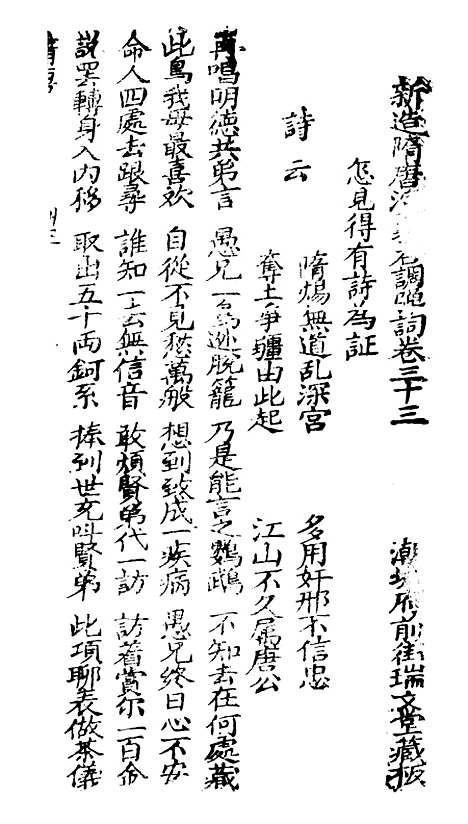 新造隋唐演義全調彈詞卷三十三　潮城府前街瑞文堂藏板
怎見得有詩為証
隋煬無道乱深宮　多用奸邪不信忠
詩云
奪土爭疆由此起　江山不久屬唐公
再唱明德共弟言　愚兄一鳥逃脫籠　乃是能言之鸚鵡　不知去在何處藏
此鳥我母最喜欢　自從不見愁萬般　想到致成一疾病　愚兄終日心不安
命人四處去跟尋　誰知一去無信音　敢煩賢弟代一訪　訪着賞尔一百金
說罢轉身入內移　取出五十両銅系　捧到世充呌賢弟　此項聊表做茶儀
隋唐